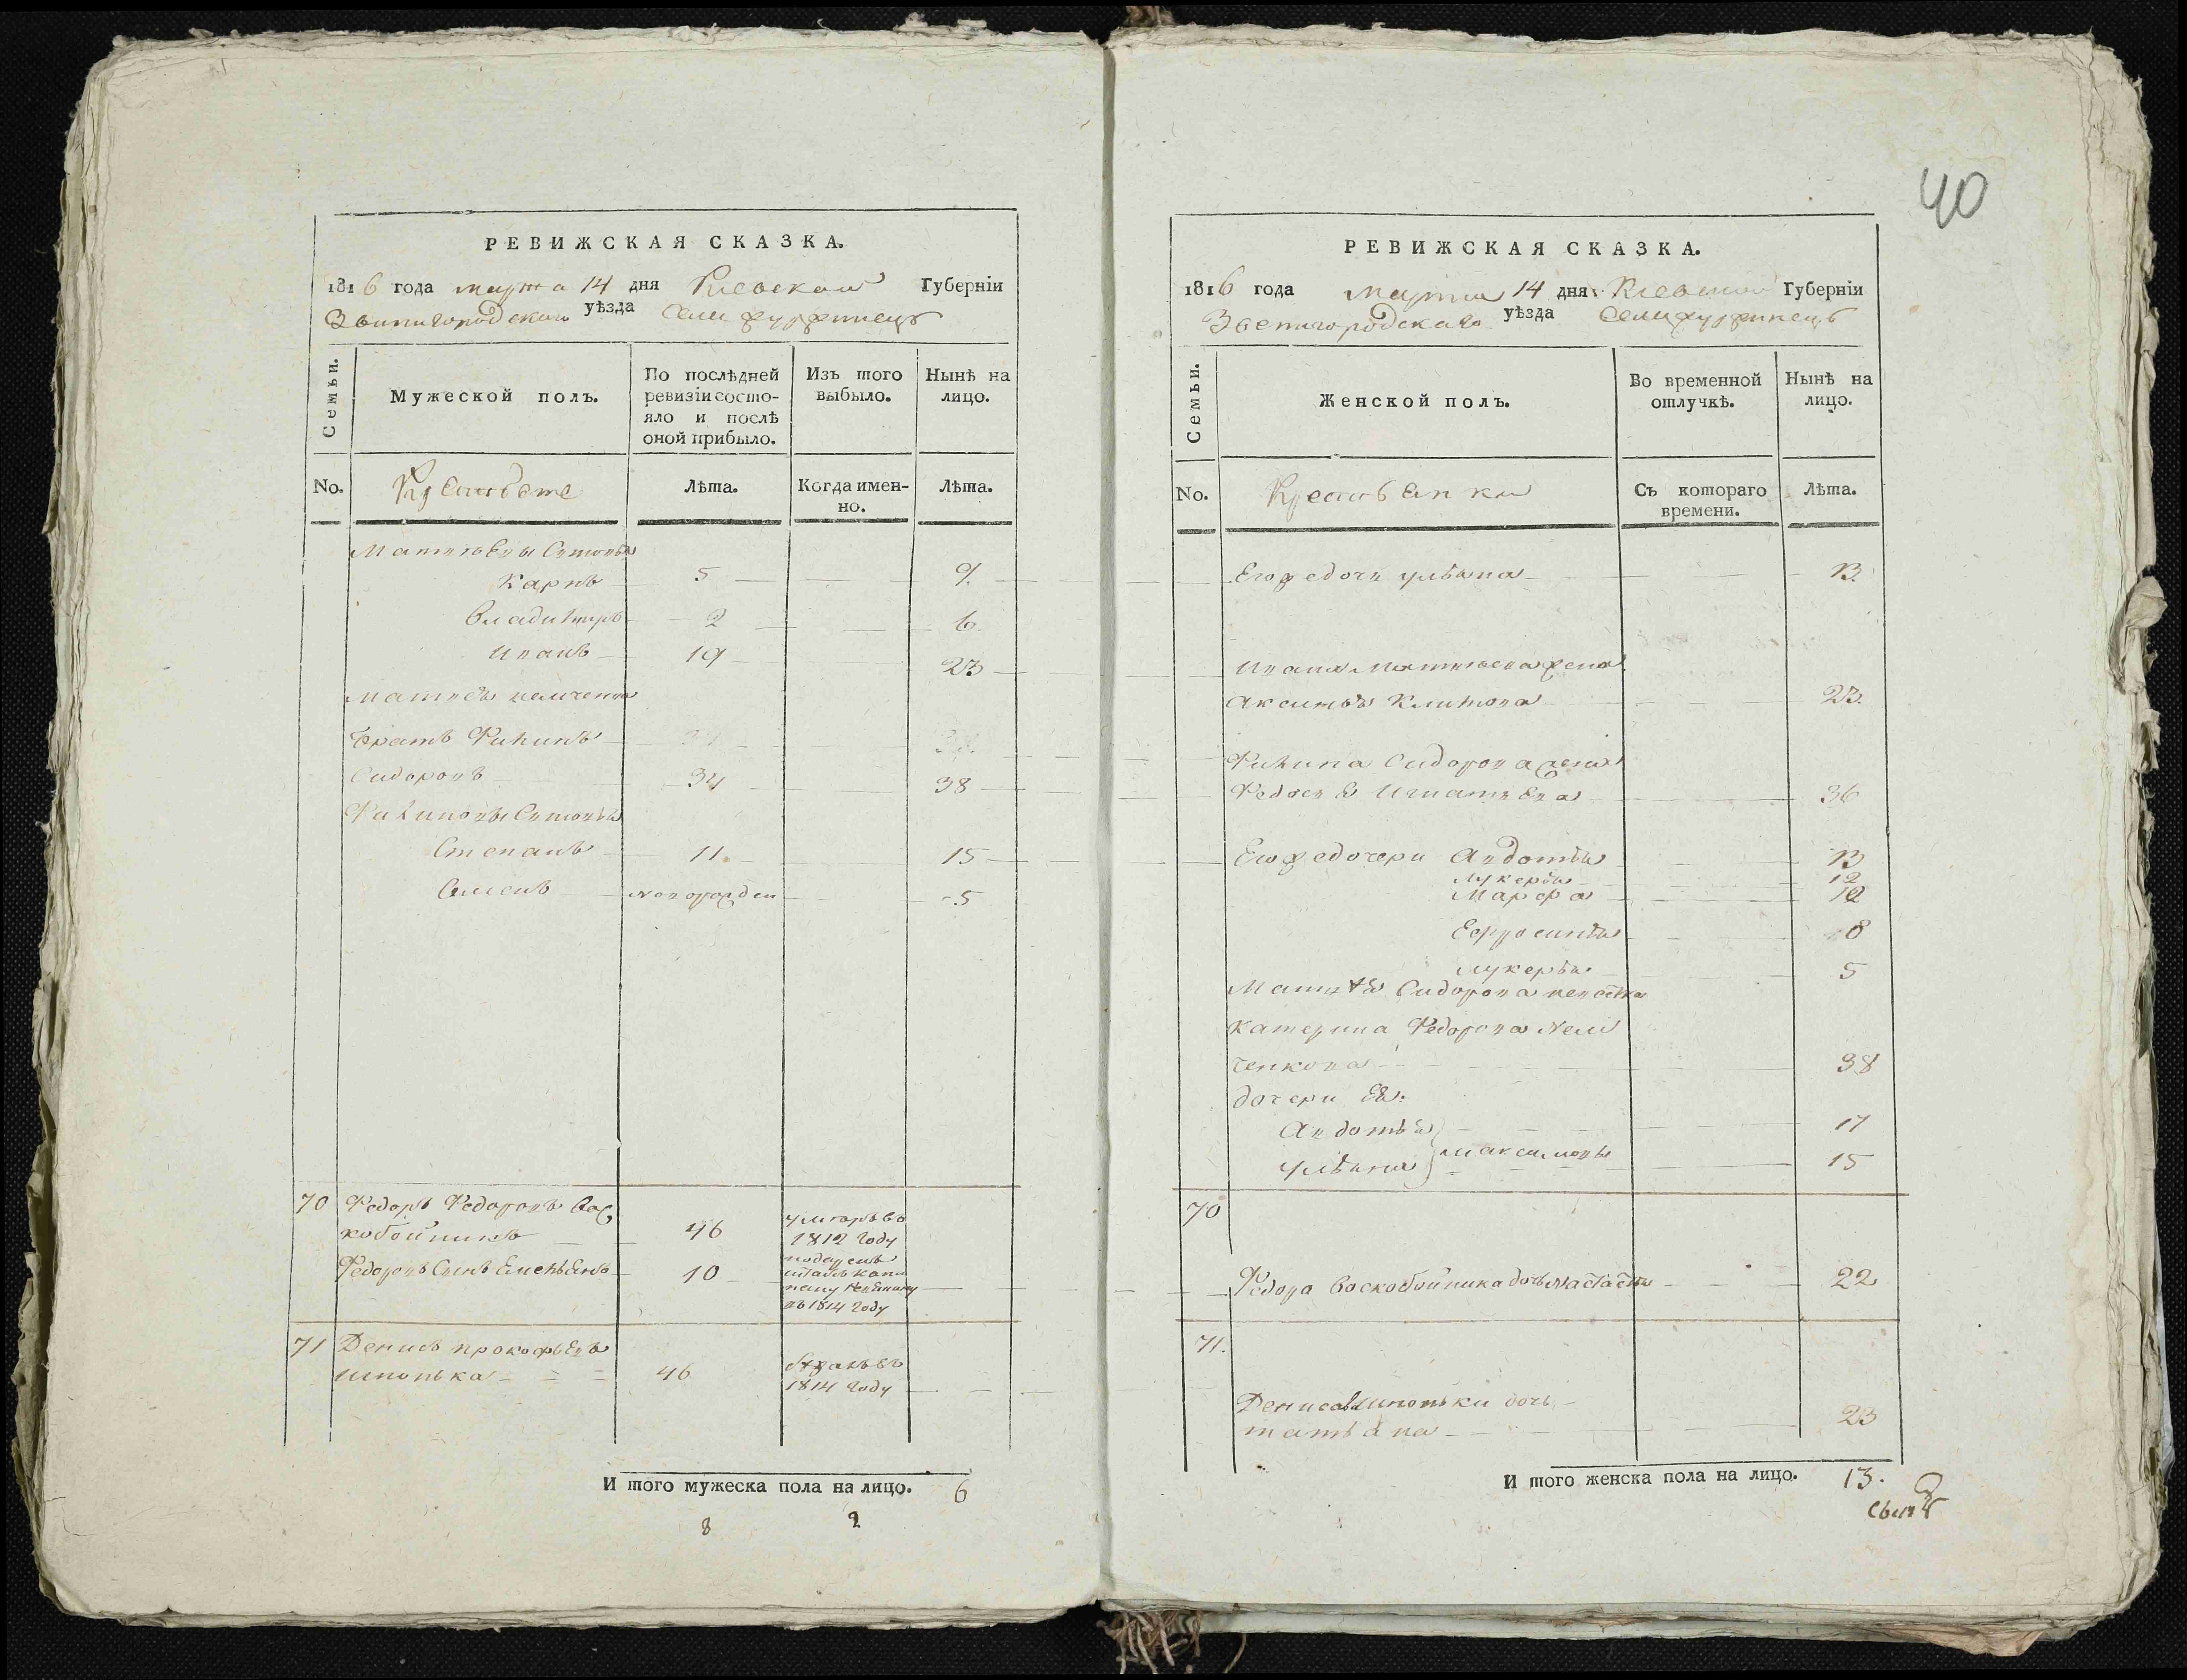 РЕВИЖСКАЯ СКАЗКА.
1816 года марта 14 дня Киевской Губерніи
Звенигородского уѣзда Села
Семьи.
Мужеской полъ.
По послѣдней ревизіи состо-
яло и послѣ
оной прибыло.
Изъ того
выбыло.
Нынѣ на
лицо.
No.
Крестьяне
Лѣта.
Когда имен-
но.
Лѣта.
Карпъ 5 9
Владимиръ 2 6
Иванъ 19 23
братъ Филипъ
Сидоровъ 34 38
Филиповы Сыновья
Степанъ 11 15
Семенъ новорожден 5
70 Федоръ Федоровъ Вос
кобойникъ 46 умеръ въ
1812 году
Федоровъ Сынъ 10
въ 1814 году
71 Денисъ прокофьевъ
шпонька 46
1814 году
И того мужеска пола на лицо. 6
8 2
40
РЕВИЖСКАЯ СКАЗКА.
1816 года марта 14 дня Киевской Губерніи
Звенигородскаго уѣзда Села
Семьи.
Женской полъ.
Во временной
отлучкѣ.
Нынѣ на
лицо.
No.
Крестьянки
Съ котораго
времени.
Лѣта.
Его же дочь ульяна 13
Ивана Матвѣева жена
Аксинья Климова 23
Филипа Сидорова жена
Федосья Игнатьева 36
Его же дочери Авдотья 13
лукерья 12
Марфа
Ефросинья 8
лукерья 5
Матвѣя Сидорова невѣстка
Катерина Федорова Нем
ченкова 38
дочери Ея:
Авдотья 17
Максимовы
ульяна 15
70
Федора Воскобойника дочь Настасья 22
71.
Дениса шпоньки дочь
татьяна 23
И того женска пола на лицо. 13.